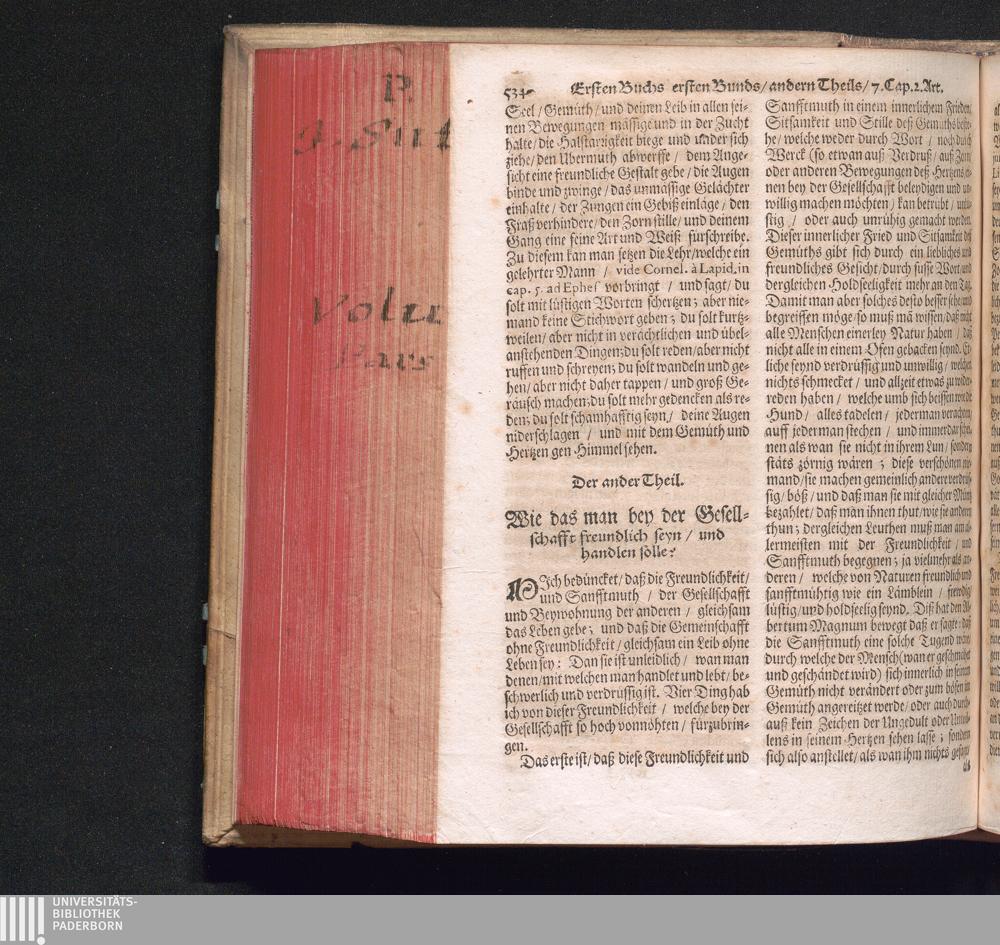 P.
Volu
Pars
534
Ersten Buchs ersten Bunds / andern Theils / 7. Cap. 2. Art.
Seel / Gemüth / und deinen Leib in allen sei-
nen Bewegungen mässige und in der Zucht
halte / die Halstarrigkeit biege und under sich
ziehe / den Ubermuth abwerffe / dem Ange-
sicht eine freundliche Gestalt gebe / die Augen
binde und zwinge / das unmässige Gelächter
einhalte / der Zungen ein Gebiß einlage / den
Fraß verhindere / den Zorn stille / und deinem
Gang eine feine Art und Weiß fürschreibe.
Zu diesem kan man setzen die Lehr / welche ein
gelehrter Mann / vide Cornel. à Lapid. in
cap. 5. ad Ephes vorbringt / und sagt / du
solt mit lüstigen Worten schertzen; aber nie-
mand keine Stichwort geben; du solt kurtz-
weilen / aber nicht in verächtlichen und übel-
anstehenden Dingen; du solt reden / aber nicht
ruffen und schreyen; du solt wandeln und ge-
hen / aber nicht daher tappen / und groß Ge-
räusch machen; du solt mehr gedencken als re-
den; du solt schamhafftig seyn / deine Augen
niderschlagen / und mit dem Gemüth und
Hertzen gen Himmel sehen.
Der ander Theil.
Wie das man bey der Gesell-
schafft freundlich seyn / und
handlen sölle?
MIch bedüncket / daß die Freundlichkeit /
und Sanfftmuth / der Gesellschafft
und Beywohnung der anderen / gleichsam
das Leben gebe; und daß die Gemeinschafft
ohne Freundlichkeit / gleichsam ein Leib ohne
Leben sey: Dan sie ist unleidlich / wan man
denen / mit welchen man handlet und lebt / be-
schwerlich und verdrussig ist. Vier Ding hab
ich von dieser Freundlichkeit / welche bey der
Gesellschafft so hoch vonnöhten / fürzubrin-
gen.
Das erste ist / daß diese Freundlichkeit und
Sanfftmuth in einem innerlichem Frieden
Sitsamkeit und Stille deß Gemüths beste-
he / welche weder durch Wort / noch durch
Werck (so etwan auß Verdruß / auß Zorn
oder anderen Bewegungen deß Hertzens
nen bey der Gesellschafft beleydigen und un-
willig machen möchten) kan betrübt /
stig / oder auch unrühig gemacht werden.
Dieser innerlicher Fried und Sitsamkeit deß
Gemüths gibt sich durch ein liebliches und
freundliches Gesicht / durch süsse Wort und
dergleichen Holdseeligkeit mehr an den Tag.
Damit man aber solches desto besser sehe und
begreiffen möge / so muß mā wissen / daß nicht
alle Menschen einerley Natur haben / daß
nicht alle in einem Ofen gebacken seynd. Et-
liche seynd verdrüssig und unwillig / welchen
nichts schmecket / und allzeit etwas zu wider-
reden haben / welche umb sich beissen wie die
Hund / alles tadelen / jederman verachten
auff jederman stechen / und immerdar schei-
nen als wan sie nicht in ihrem Lun / sondern
stäts zörnig wären; diese verschönen nie-
mand / sie machen gemeinlich andere verdrüs-
sig / böß / und daß man sie mit gleicher Müntz
bezahlet / daß man ihnen thut / wie sie anderen
thun; dergleichen Leuthen muß man am al-
lermeisten mit der Freundlichkeit / und
Sanfftmuth begegnen; ja vielmehr als an-
deren / welche von Naturen freundlich und
sanfftmühtig wie ein Lämblein / frewdig
lüstig / und holdseelig seynd. Diß hat den Al-
bertum Magnum bewegt daß er sagte: daß
die Sanfftmuth eine solche Tugend wäre
durch welche der Mensch (wan er geschmähet
und geschändet wird) sich innerlich in seinem
Gemüth nicht verändert oder zum bösen im
Gemüth angereitzet werde / oder auch durch-
auß kein Zeichen der Ungedult oder Unwil-
lens in seinem Hertzen sehen lasse; sondern
sich also anstellet / als wan ihm nichts gesagt
UNIVERSITÄTS-
BIBLIOTHEK
PADERBORN